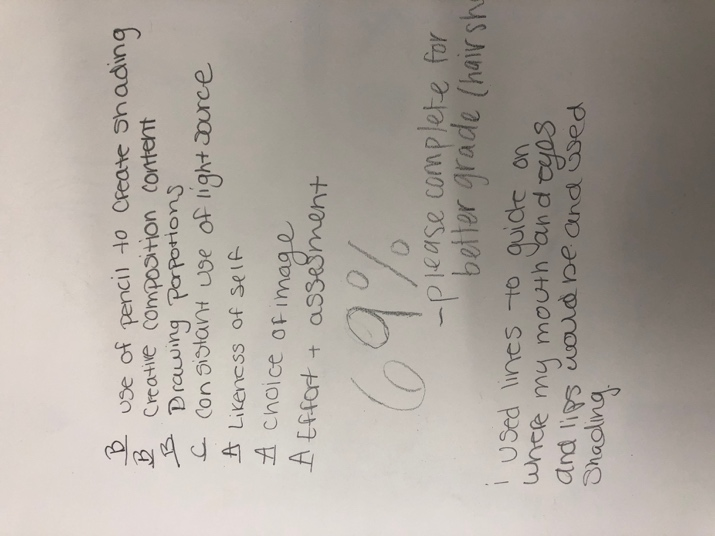 B Use of pencil to create shading
B Creative composition content
B Drawing Porpotions
C Consistant use of light source
A Likeness of self
A Choice of image
A Effort + assesment
69%
-please complete for
better grade (hair sh
i used lines to guide on
where my mouth and eyes
and lips would be and used
shading.